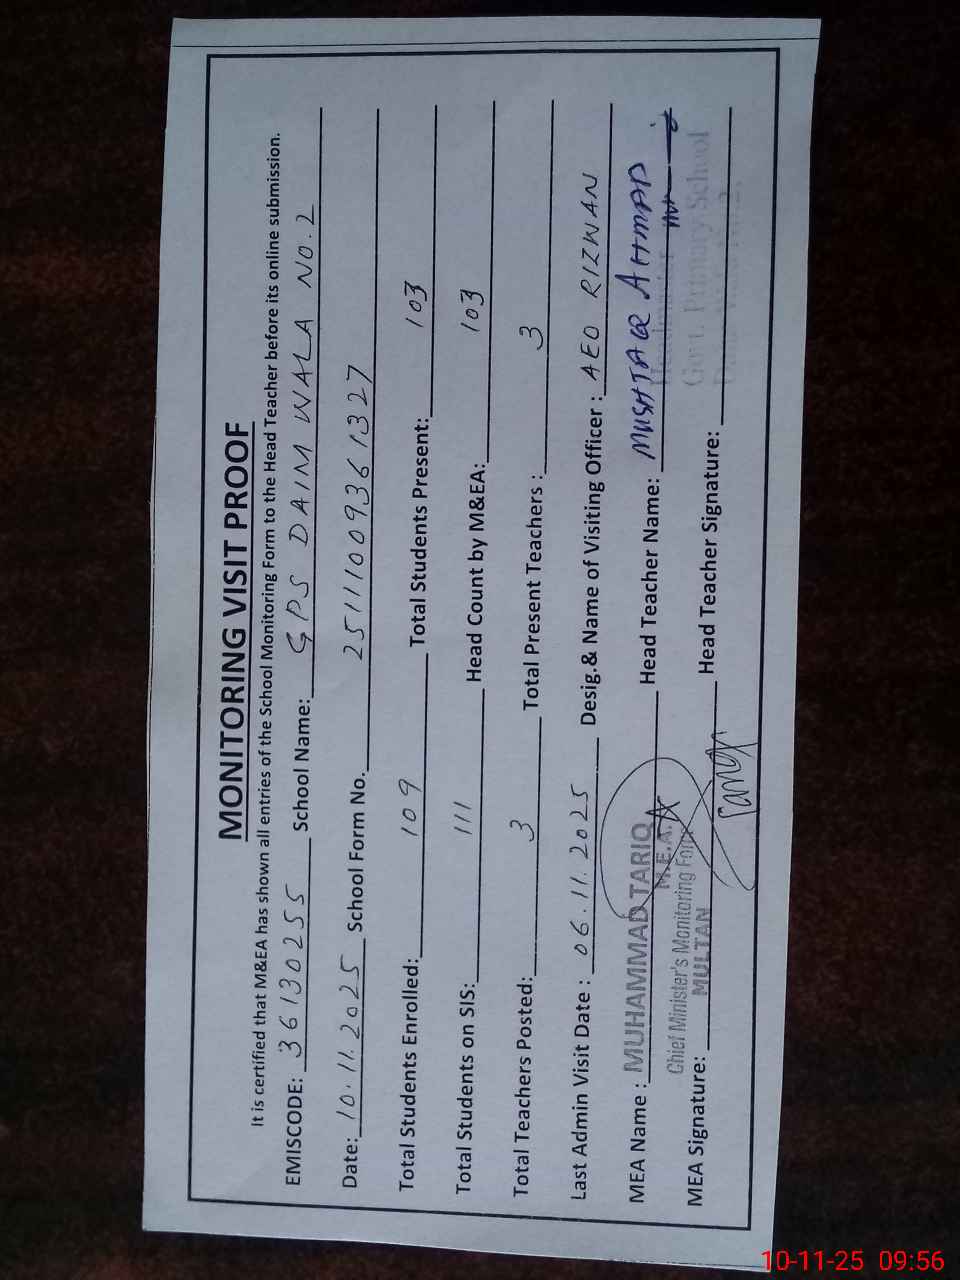 MONITORING VISIT PROOF
It is certified that M&EA has shown all entries of the School Monitoring Form to the Head Teacher before its online submission.
EMISCODE: 36130255 School Name: GPS DAIM WALA NO.2
Date: 10.11.2025 School Form No. 25111009361327
Total Students Enrolled: 109 Total Students Present: 103
Total Students on SIS: 111 Head Count by M&EA: 103
Total Teachers Posted: 3 Total Present Teachers : 3
Last Admin Visit Date : 06.11.2025 Desig.& Name of Visiting Officer : AEO RIZWAN
MEA Name : MUHAMMAD TARIQ Head Teacher Name: MUSHTAQ AHMAD
M.E.A.
Chief Minister's Monitoring Force
MULTAN
MEA Signature: Head Teacher Signature:
Govt. Primary School
10-11-25 09:56